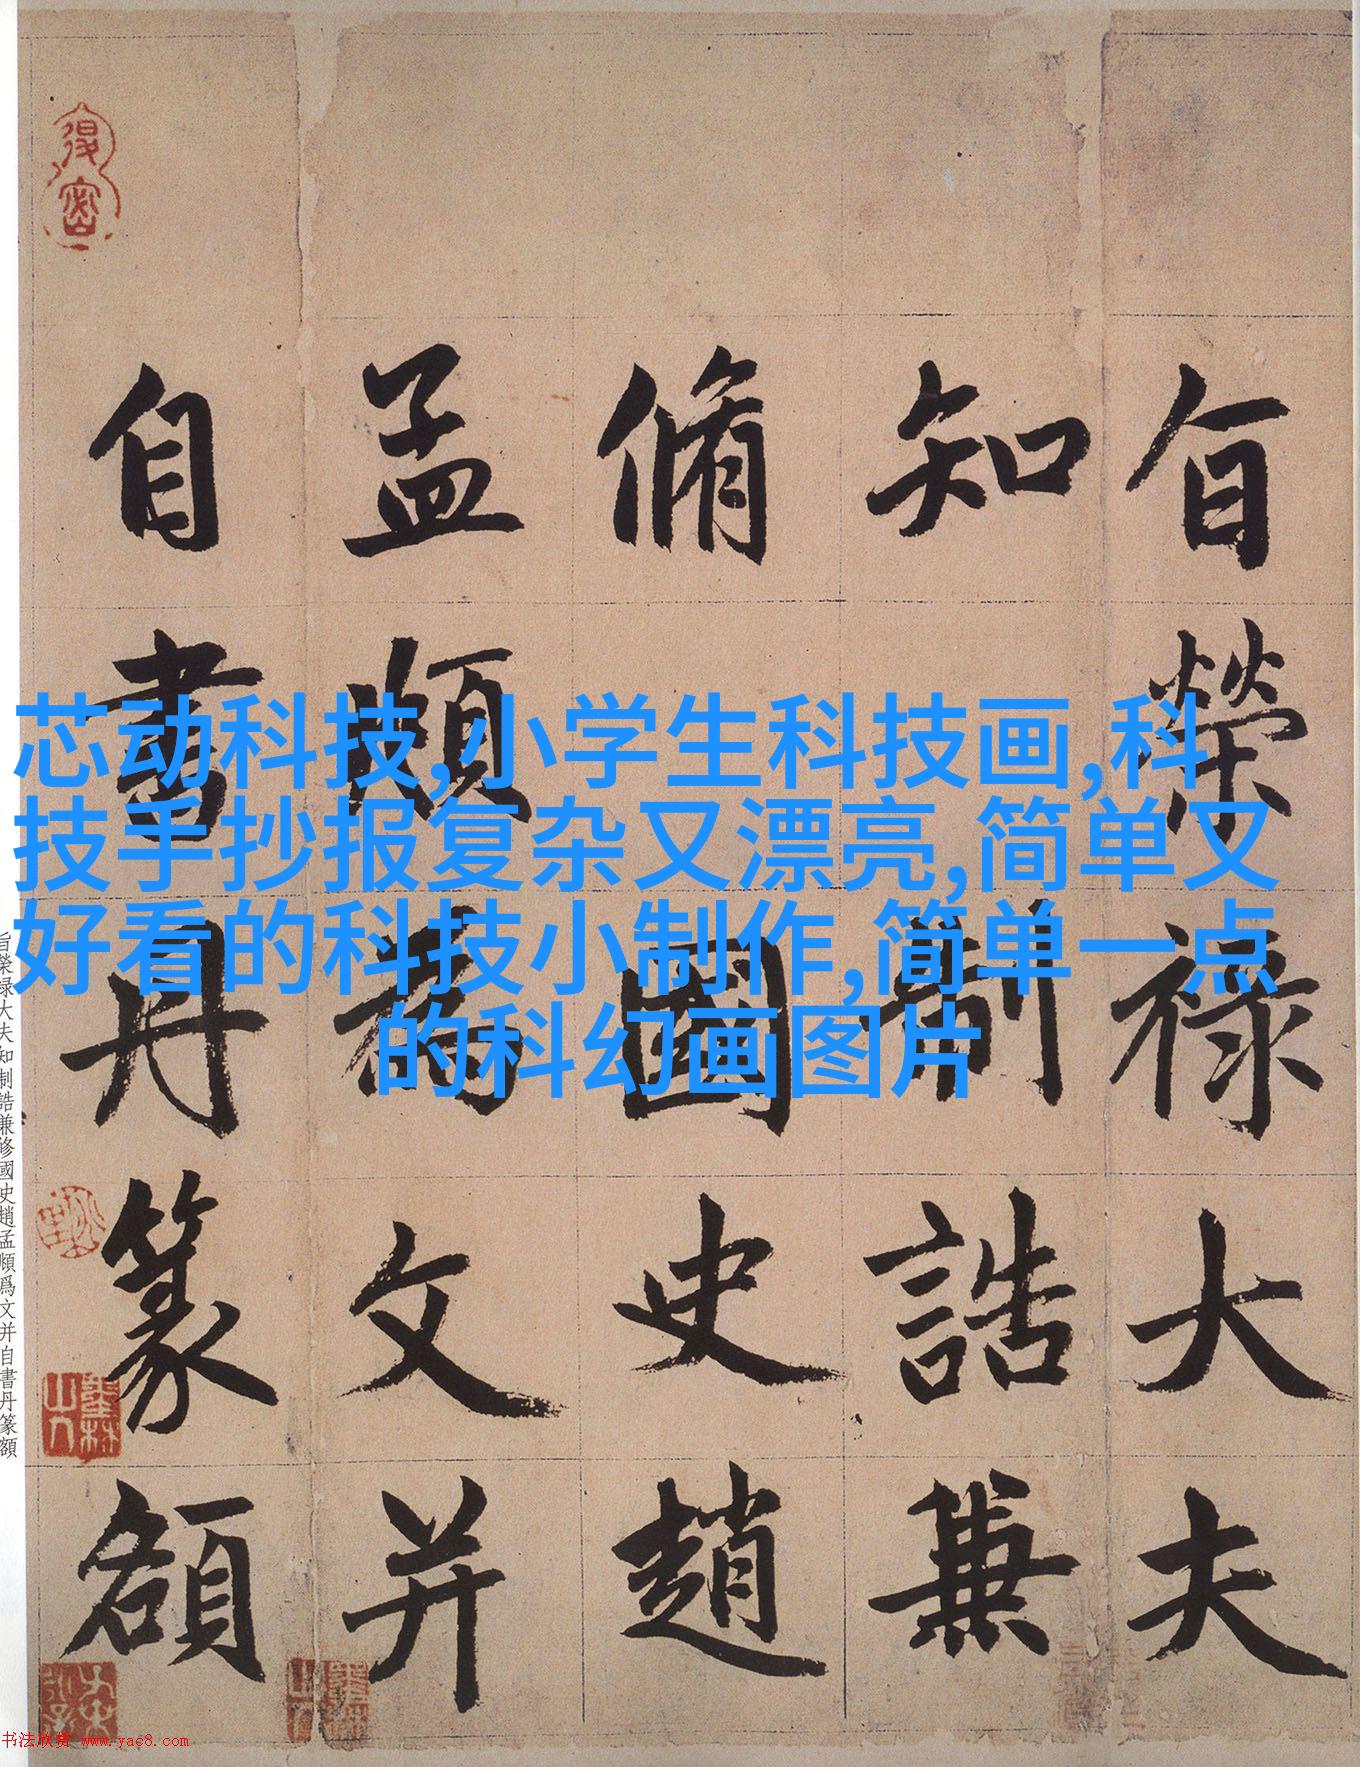 旨榮祿大夫
知制誥兼
脩國史趙
孟頫為文并
自書丹篆額
芯动科技,小学生科技画,科
技手抄报复杂又漂亮,简单又
好看的科技小制作,简单一点
的科幻画图片
旨榮祿大夫知制誥兼修國史趙孟頫爲文并自書丹篆額
书法欣赏 www.yac8.com